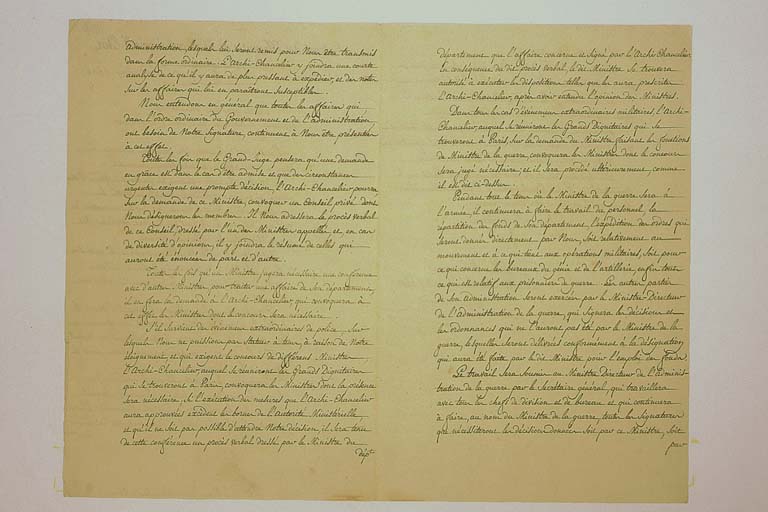 administration, lesquels lui seront remis pour Nous être transmis
dans la forme ordinaire. L'Archi-Chancelier y joindra une courte
analyse de ce qu'il y aura de plus pressant à expédier, et des notes
sur les affaires qui lui en paraîtront susceptibles.
Nous entendons en général que toutes les affaires qui,
dans l'ordre ordinaire du Gouvernement et de l'administration
ont besoin de Notre Signature, continuent à Nous être présentées
à cet effet.
Toutes les fois que le Grand-Juge pensera qu'une demande
en grâce est dans le cas d'être admise et que des circonstances
urgentes exigent une prompte décision, l'Archi-Chancelier pourra
sur la demande de ce Ministre, convoquer un Conseil privé dont
Nous désignerons les membres. Il Nous adressera le procès verbal
de ce Conseil, dressé par l'un des Ministres appellés et, en cas
de diversité d'opinions, il y joindra le résumé de celles qui
auront été énoncées de part et d'autre.
Toutes les fois qu'un Ministre jugera nécessaire une conférence
avec d'autres Ministres pour traiter une affaire de son département,
il en fera la demande à l'Archi-Chancelier qui convoquera à
cet effet les Ministres dont le concours sera nécessaire.
S'il survient des évènemens extraordinaires de police, sur
lesquels Nous ne puissions pas statuer à tems, à raison de Notre
éloignement, et qui exigent le concours de différens Ministres
l'Archi-Chancelier auquel se réuniront les Grands Dignitaires
qui se trouveront à Paris, convoquera les Ministres dont la présence
sera nécessaire. Si l'exécution des mesures que l'Archi-Chancelier
aura approuvées excédent les bornes de l'autorité Ministérielle,
et qu'il ne soit pas possible d'attendre Notre décision, il sera tenu
de cette conférence un procès verbal dressé par le Ministre du
dépt
département que l'affaire concerne et signé par l'Archi-Chancelier.
En conséquence du dit procès verbal le dit Ministre se trouvera
autorisé à exécuter les dispositions telles que les aura prescrites
l'Archi-Chancelier, après avoir entendu l'opinion des Ministres.
Dans tous les cas d'évènemens extraordinaires militaires, l'Archi-
Chancelier, auquel se réuniront les Grands Dignitaires qui se
trouveront à Paris sur la demande du Ministre faisant les fonctions
de Ministre de la guerre, convoquera les Ministres dont le concours
sera jugé nécessaire; et il sera procédé ultérieurement, comme
il est dit ci-dessus.
Pendant tout le tems où le Ministre de la guerre sera à
l'armée, il continuera à faire le travail du personnel, la
répartition des fonds de son département, l'expédition des ordres qui
seront donnés directement par Nous, soit relativement au
mouvement et à ce qui tient aux opérations militaires, soit pour
ce qui concerne les bureaux du génie et de l'artillerie, enfin tout
ce qui est relatif aux prisonniers de guerre. Les autres parties
de son administration seront exercées par le Ministre Directeur
de l'administration de la guerre, qui signera les décisions et
les ordonnances qui ne l'auront pas été par le Ministre de la
guerre, lesquelles seront délivrées conformément à la désignation
qui aura été faite par le dit Ministre pour l'emploi des fonds.
Le travail sera soumis au Ministre Directeur de l'Adminis-
tration de la guerre par le Secrétaire général, qui travaillera
avec tous les chefs de division et de bureau et qui continuera
à faire, au nom du Ministre de la guerre, toutes les signatures
que nécessiteront les décisions données soit par ce Ministre, soit
par